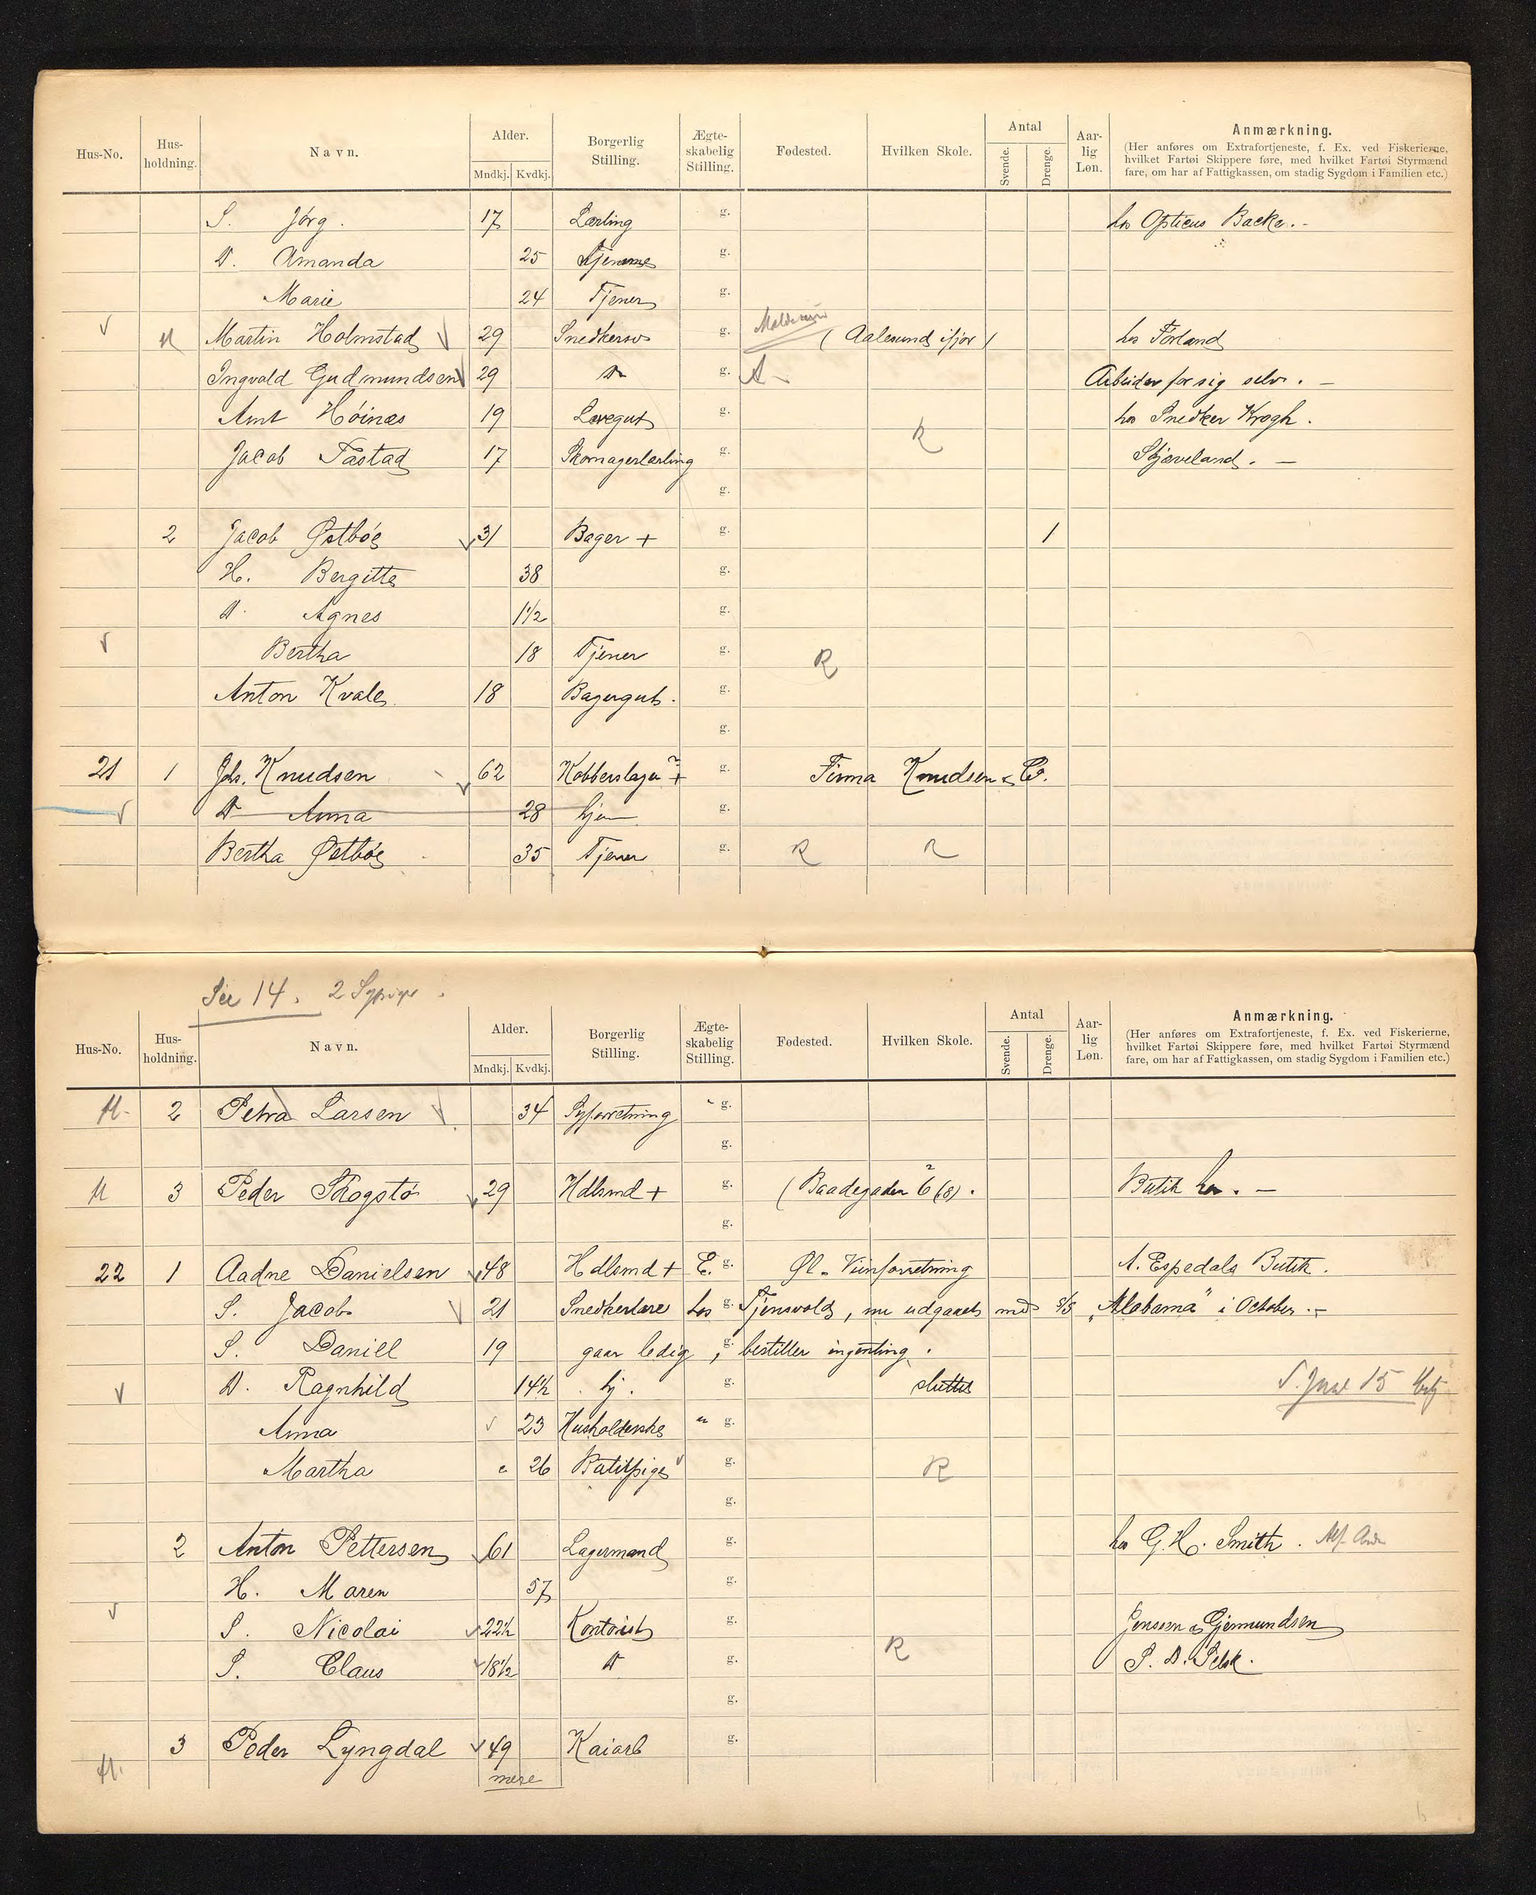 Hus-No. Hus-holdning. Navn. Alder. Mndkj. Kvdkj. Borgerlig Stilling. Ægte-skabelig Stilling. Fødested. Hvilken Skole. Antal Svende. Drenge. Aar-lig Løn. Anmærkning.
(Her anføres om Extrafortjeneste, f. Ex. ved Fiskerierne, hvilket Fartøi Skippere føre, med hvilket Fartøi Styrmænd fare, om har af Fattigkassen, om stadig Sygdom i Familien etc.)
S. Jørg. 17 Lærling g. hos Opticus Backe. -
D. Amanda 25 g.
Marie 24 Tjener g.
M Martin Holmstad 29 Snedkersv g. (Aalesund ifjor) hos Førland
Ingvald Gudmundsen 29 Do g. A - Arbeider for sig selv. -
Arnt Høines 19 Læregut g. hos Snedker Krogh.
Jacob Tastad 17 Skomagerlærling g. R Skjæveland. -
g.
2 Jacob Østbøe 31 Bager + g. 1
H. Bergitte 38 g.
D. Agnes 1 1/2 g.
Bertha 18 Tjener g. R
Anton Kvale 18 Bagergut. g.
g.
21 1 Johs. Knudsen 62 Kobberslager + g. Firma Knudsen & Co.
D Anna 28 hjem g.
Bertha Østbøe 35 Tjener g. R R
See 14. 2 Sypiger.
Hus-No. Hus-holdning. Navn. Alder. Mndkj. Kvdkj. Borgerlig Stilling. Ægte-skabelig Stilling. Fødested. Hvilken Skole. Antal Svende. Drenge. Aar-lig Løn. Anmærkning.
(Her anføres om Extrafortjeneste, f. Ex. ved Fiskerierne, hvilket Fartøi Skippere føre, med hvilket Fartøi Styrmænd fare, om har af Fattigkassen, om stadig Sygdom i Familien etc.)
M. 2 Petra Larsen 34 Syforretning g.
g.
M 3 Peder Skogstø 29 Hdlsmd + g. (Baadegaden 6 (8). Butik her. -
g.
22 1 Aadne Danielsen 48 Hdlsmd + E. g. Øl- Viinforretning A. Espedals Butik.
S. Jacob 21 Snedkerlære hos g. Tjensvold, nu udgaaet med S/S "Alabama" i October. -
S. Daniel 19 gaar ledig, g. bestiller ingenting.
D. Ragnhild 14 1/2 hj. g. sluttet
Anna 23 Husholderske g.
Martha 26 Butikpige g. R
g.
2 Anton Pettersen 61 Lagermand g. hos G. H. Smith.
H. Maren 57 g.
S. Nicolai 22 1/2 Kontorist g. Jensen og Gjermundsen
S. Claus 18 1/2 Do g. R S. D. Selsk.
g.
M. 3 Peder Lyngdal 49 Kaiarb g.
mere